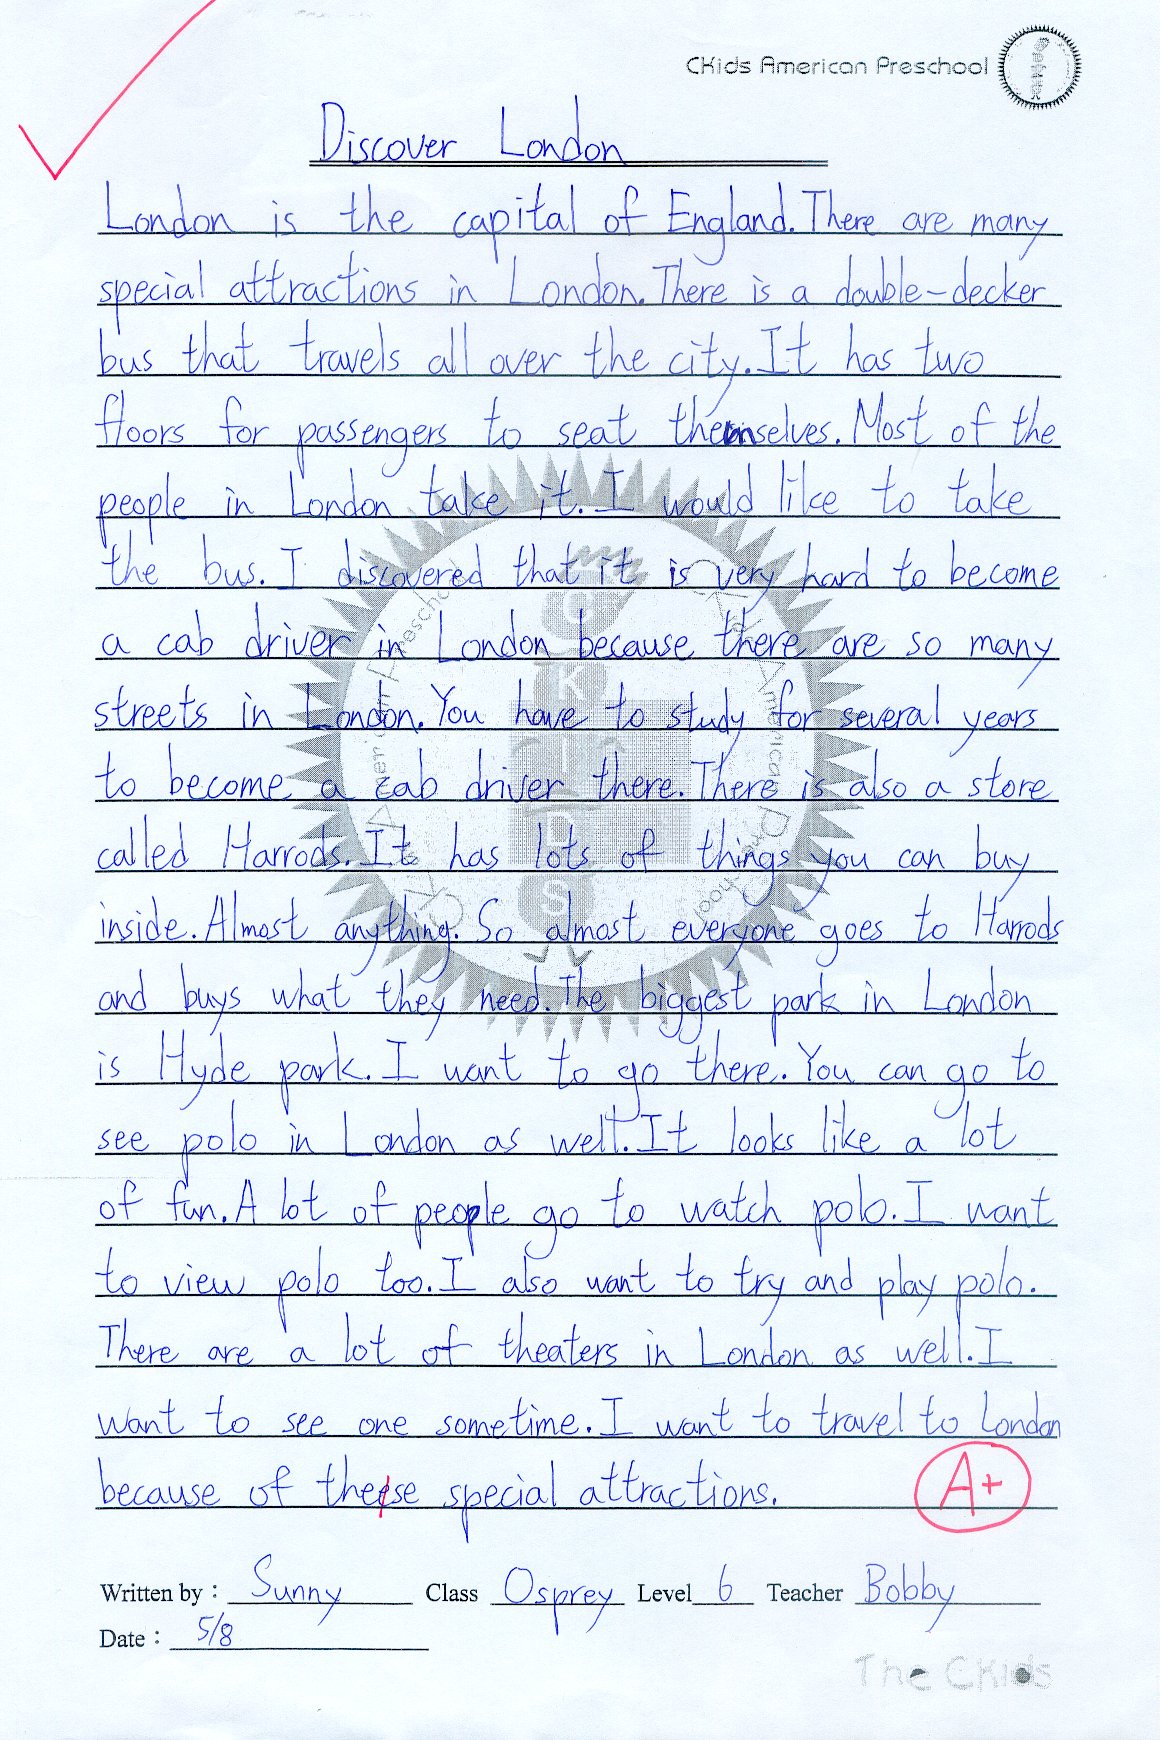 CKids American Preschool
Discover London
London is the capital of England. There are many
special attractions in London. There is a double-decker
bus that travels all over the city. It has two
floors for passengers to seat themselves. Most of the
people in London take it. I would like to take
the bus. I discovered that it is very hard to become
a cab driver in London because there are so many
streets in London. You have to study for several years
to become a cab driver there. There is also a store
called Harrods. It has lots of things you can buy
inside. Almost anything. So almost everyone goes to Harrods
and buys what they need. The biggest park in London
is Hyde park. I want to go there. You can go to
see polo in London as well. It looks like a lot
of fun. A lot of people go to watch polo. I want
to view polo too. I also want to try and play polo.
There are a lot of theaters in London as well. I
want to see one sometime. I want to travel to London
because of these special attractions.
A+
Written by : Sunny Class Osprey Level 6 Teacher Bobby
Date : 5/8
The CKids